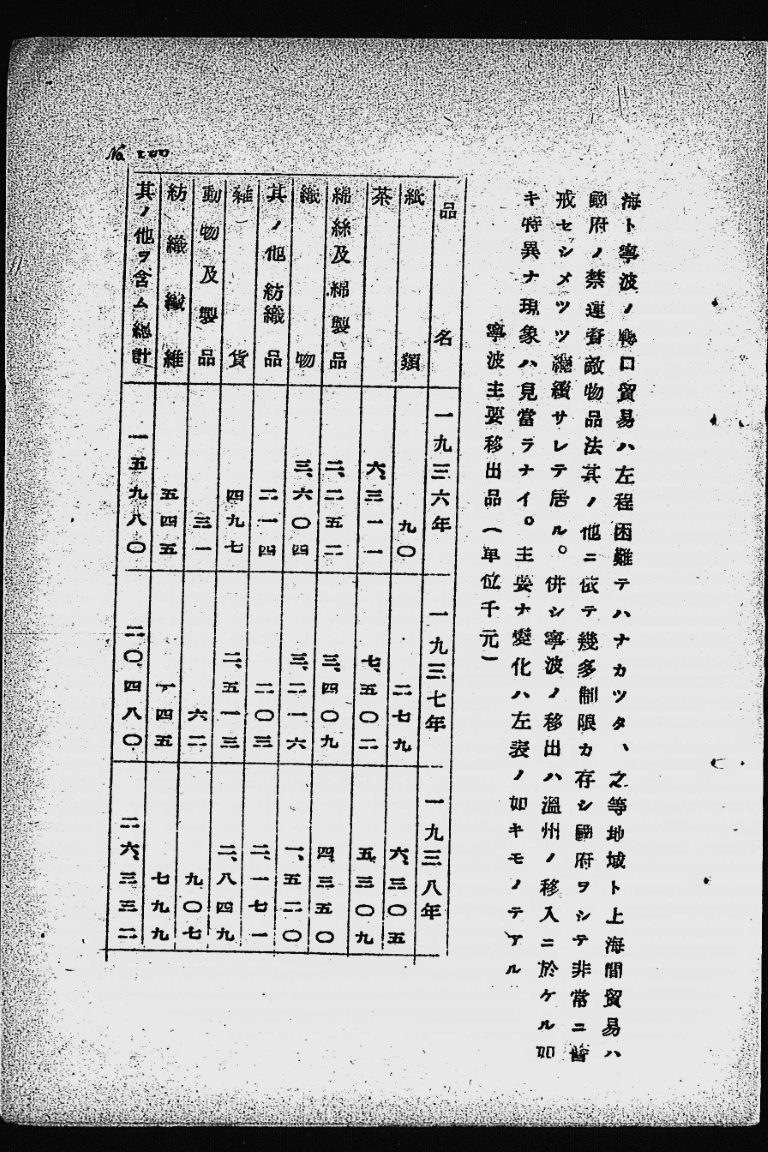 海ト寧波ノ轉口貿易ハ左程困難テハナカツタ、之等地域ト上海間貿易ハ
國府ノ禁運資敵物品法其ノ他ニ依テ幾多制限カ存シ國府ヲシテ非常ニ警
戒セシメツツ繼續サレテ居ル。併シ寧波ノ移出ハ溫州ノ移入ニ於ケル如
キ特異ナ現象ハ見當ラナイ。主要ナ變化ハ左表ノ如キモノテアル
寧波主要移出品(單位千元)
品名 一九三六年 一九三七年 一九三八年
紙類 九〇 二七九 六、三〇五
茶 六、三一一 七、五〇二 五、三〇九
綿絲及綿製品 二、二五二 三、四〇九 四、三五〇
織物 三、六〇四 三、二一六 一、五二〇
其ノ他紡織品 二一四 二〇三 二、一七一
雜貨 四九七 二、五一三 二、八四九
動物及製品 三一 六二 九〇七
紡織纖維 五四五 一四五 七九九
其ノ他ヲ含ム總計 一五九八〇 二〇四八〇 二六、三三二
No